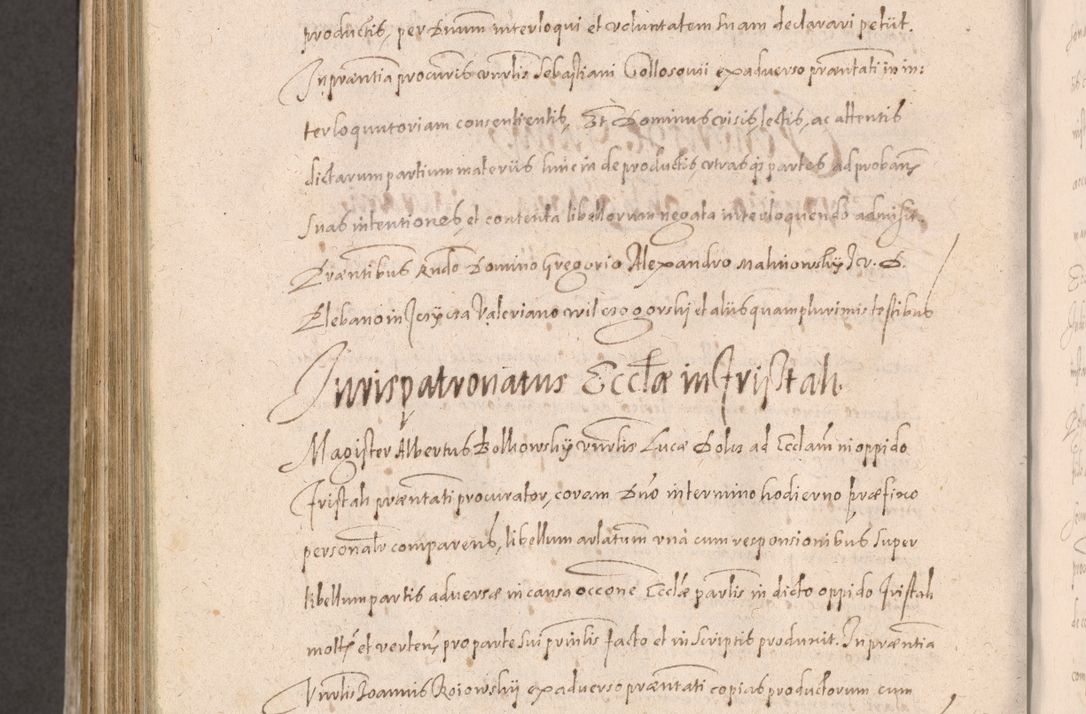 productis, per Dnum interloqui et voluntatem suam declarari petiit.
In præntia procuris vnrlis Sebastiani Gollosouii ex aduerso præntati in in:
terloquutoriam consentientis, Et Dominus visis, lectis, ac attentis
dictarum partium materiis hinc inde productis vtrasq; partes ad proband
suas intentiones, et contenta libellorum negata interloquendo admisit.
Præntibus Rndo Domino Gregorio Alexandro
Plebano in Valeriano et aliis quamplurimis testibus
Jurispatronatus Ecclæ in Tristah
Magister Albertus vnrlis Lucæ ad Ecclam in oppido
Tristah præntati procurator, coram Dno in termino hodierno præfixo
personalr comparens, libellum arlatum vna cum responsionibus super
libellum partis aduersæ in causa occone Ecclæ parlis in dicto oppido Tristah
et verten, pro parte sui prinlis facto et in scriptis produxit. In præntia
Vnrlis Joannis ex aduerso præntati copias productorum cum